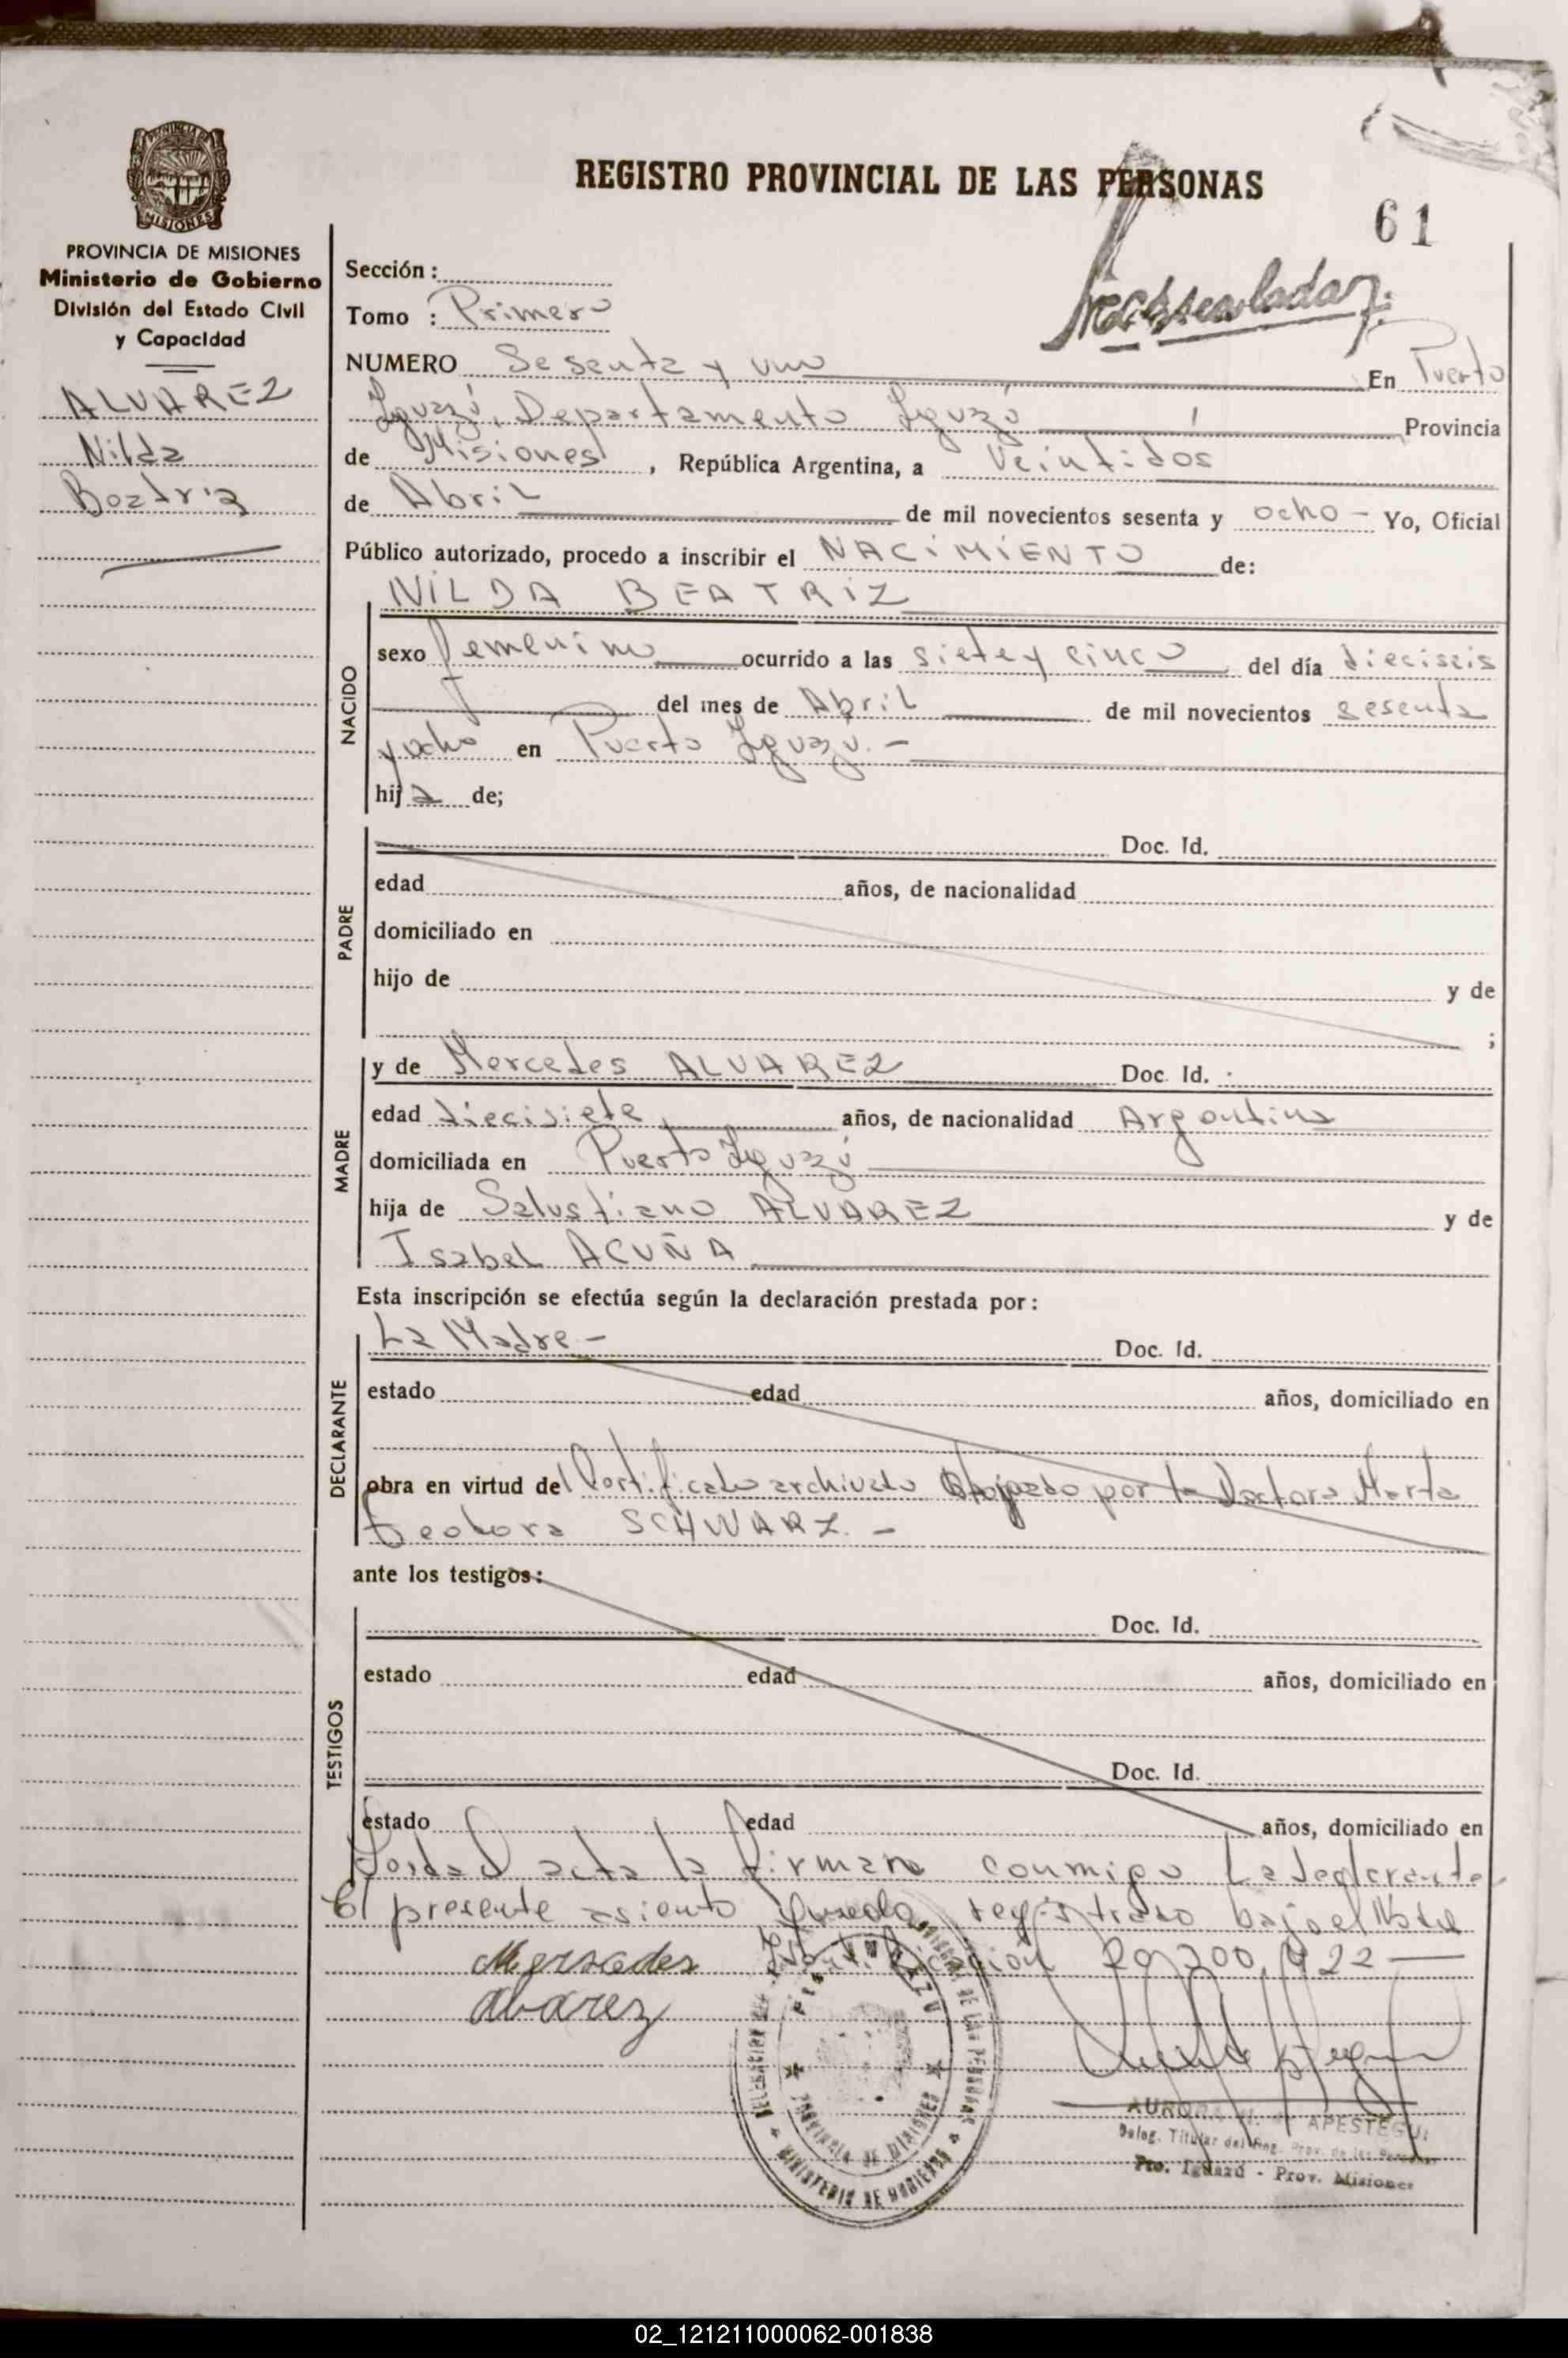 REGISTRO PROVINCIAL DE LAS PERSONAS
61
PROVINCIA DE MISIONES
Ministerio de Gobierno
División del Estado Civil
y Capacidad
ALVAREZ
Nilda
Beatriz
Sección :
Tomo : Primero
NUMERO Sesenta y uno En Puerto
Iguazú, Departamento Iguazú Provincia
de Misiones, República Argentina, a Veintidos
de Abril de mil novecientos sesenta y ocho - Yo, Oficial
Público autorizado, procedo a inscribir el NACIMIENTO de:
NILDA BEATRIZ
NACIDO
sexo femenino ocurrido a las siete y cinco del día dieciseis
del mes de Abril de mil novecientos sesenta
y ocho en Puerto Iguazú. -
hija de;
PADRE
Doc. Id.
edad años, de nacionalidad
domiciliado en
hijo de y de
;
MADRE
y de Mercedes ALVAREZ Doc. Id.
edad diecisiete años, de nacionalidad Argentina
domiciliada en Puerto Iguazú
hija de Salustiano ALVAREZ y de
Isabel ACUÑA
Esta inscripción se efectúa según la declaración prestada por :
DECLARANTE
La Madre - Doc. Id.
estado edad años, domiciliado en
obra en virtud del Certificado archivado por la Doctora Marta
Teodora SCHWARZ. -
ante los testigos :
TESTIGOS
Doc. Id.
estado edad años, domiciliado en
Doc. Id.
estado edad años, domiciliado en
acta la firmana conmigo La declarante
El presente asiento queda registrado bajo el No del
20,200,922
Mersedes
alvarez
DELEGACION DEL REGISTRO PROVINCIAL DE LAS PERSONAS
PTO. IGUAZU
PROVINCIA DE MISIONES
MINISTERIO DE GOBIERNO
AURORA APESTEGUI
Deleg. Titular del Reg. Prov. de las Personas
Pto. Iguazú - Prov. Misiones
02_121211000062-001838